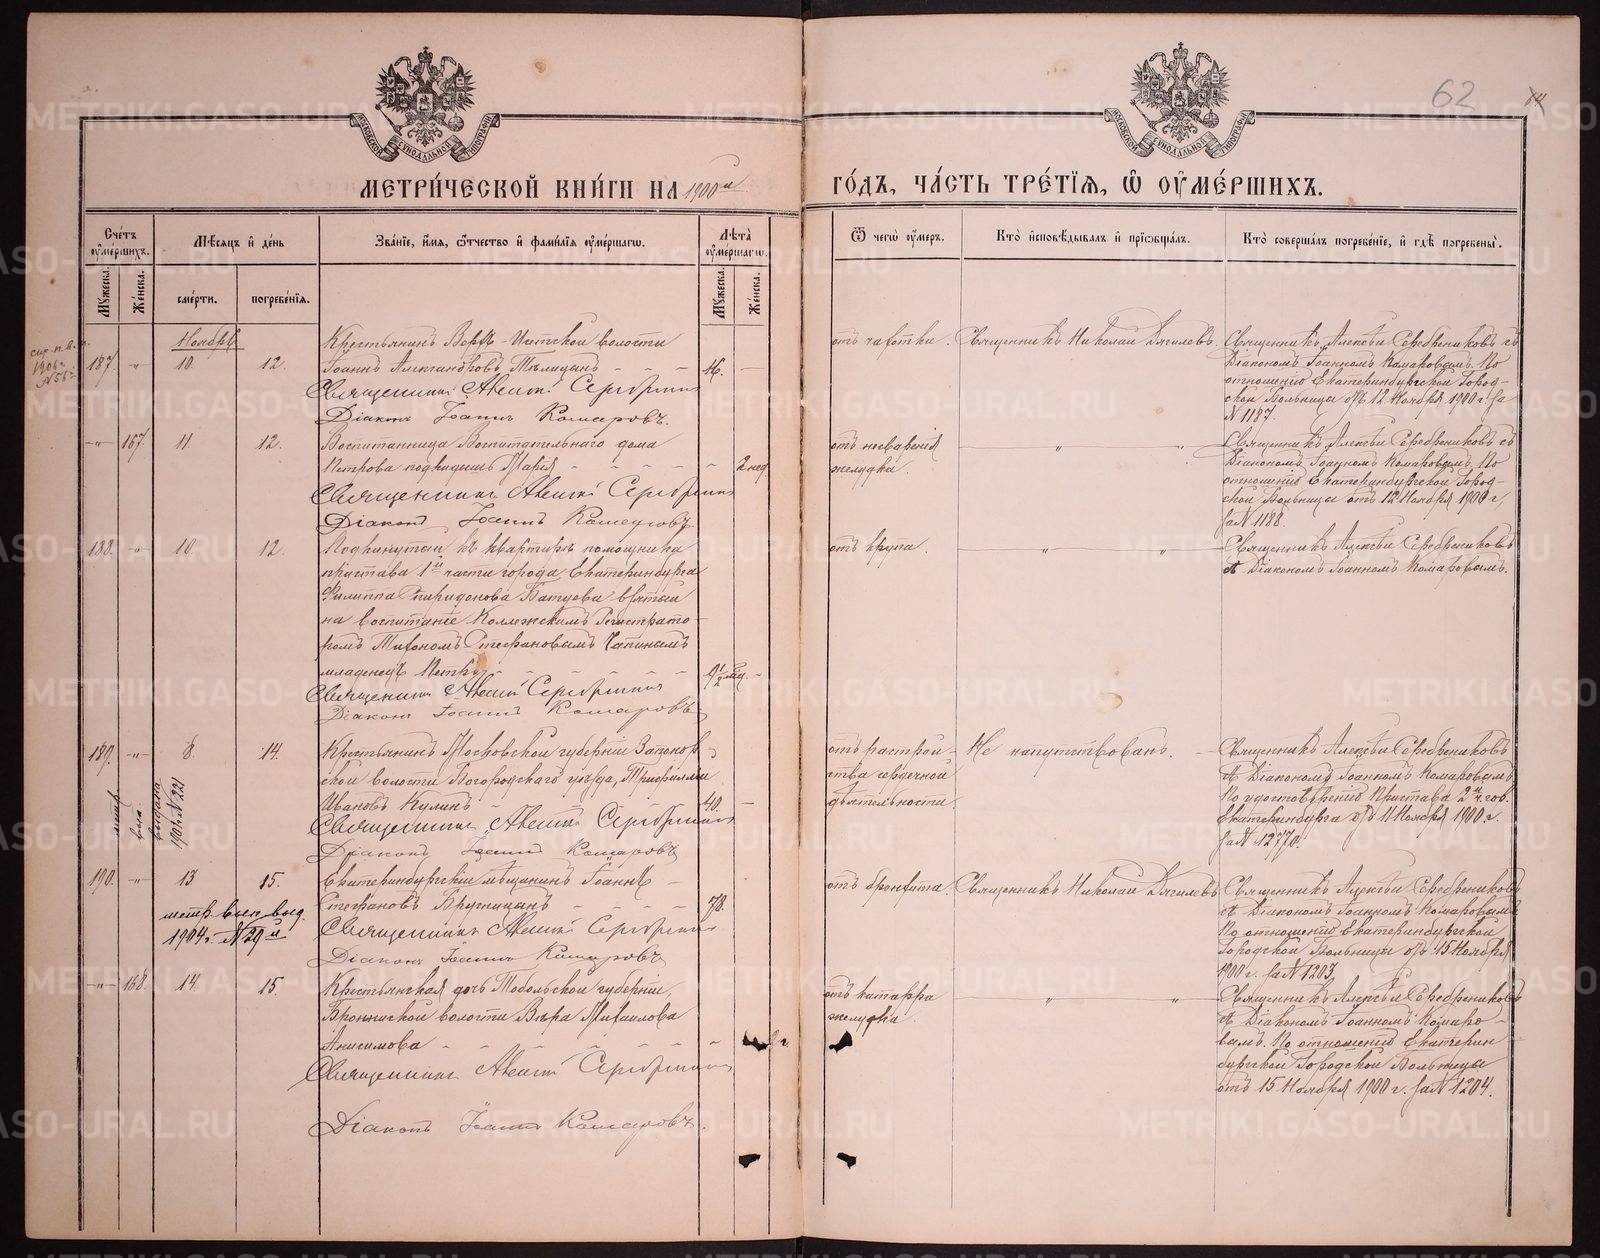 МЕТРИЧЕСКОЙ КНИГИ НА 1900й ГОДЪ, ЧАСТЬ ТРЕТІЯ, Ѿ ОУМЕРШИХЪ.
62
МОСКОВСКОЙ СУНОДАЛЬНОЙ ТИПОГРАФІИ
МОСКОВСКОЙ СУНОДАЛЬНОЙ ТИПОГРАФІИ
Счетъ оумершихъ.
Мужеска.
Женска.
Мѣсяцъ и день
смерти.
погребенія.
Званіе, имя, отчество и фамилія оумершагω.
Лѣта оумершагω.
Мужеска.
Женска.
Ѿ чегω оумеръ.
Кто исповѣдывалъ и пріобщалъ.
Кто совершалъ погребеніе, и гдѣ погребены.
Ноябрь
187. -"- 10. 12.
Крестьянинъ Верхъ-Исетской волости
Іоаннъ Александровъ Тѣлицынъ
46.
отъ чахотки.
Священникъ Николай Дягилевъ.
Священникъ Алексѣй Серебрениковъ съ
Діакономъ Іоанномъ Комаровымъ. По
отношенію Екатеринбургской Город-
ской Больницы отъ 12 Ноября 1900 г. за
№ 1187
Священникъ Алексій Серебрениковъ
Діаконъ Іоаннъ Комаровъ.
-"- 167. 11. 12.
Воспитанница Воспитательнаго дома
Петрова подкидышъ Марія
2 нед
отъ несваренія
желудка.
Священникъ Алексѣй Серебрениковъ съ
Діакономъ Іоанномъ Комаровымъ. По
отношенію Екатеринбургской Город-
ской Больницы отъ 12 Ноября 1900 г,
за № 1188.
Священникъ Алексій Серебрениковъ
Діаконъ Іоаннъ Комаровъ
188. -"- 10. 12.
Подкинутый къ квартирѣ помощника
пристава 1й части города Екатеринбурга
Филиппа Спиридонова Батуева взятый
на воспитаніе Коллежскимъ Регистрато-
ромъ Тихономъ Стефановымъ Чапинымъ
младенецъ Петръ
отъ крупа.
Священникъ Алексѣй Серебрениковъ
съ Діакономъ Іоанномъ Комаровымъ.
Священникъ Алексій Серебрениковъ
Діаконъ Іоаннъ Комаровъ
189. -"- 8. 14.
Крестьянинъ Московской губерніи Запонор-
ской волости Богородскаго уѣзда, Трифиллій
Ивановъ Кулинъ
40.
отъ растрой-
ства сердечной
дѣятельности.
Не напутствованъ.
Священникъ Алексѣй Серебрениковъ
съ Діакономъ Іоанномъ Комаровымъ
По удостовѣренію Пристава 2й ч. гор.
Екатеринбурга отъ 11 Ноября 1900 г.
за № 12770.
метр.
вып.
выдана
1901 № 221
Священникъ Алексій Серебрениковъ
Діаконъ Іоаннъ Комаровъ
190. -"- 13. 15.
Екатеринбургскій мѣщанинъ Іоаннъ
Стефановъ Брусницынъ
78.
отъ бронхита.
Священникъ Николай Дягилевъ
Священникъ Алексѣй Серебрениковъ
съ Діакономъ Іоанномъ Комаровымъ
По отношенію Екатеринбургской
Городской Больницы отъ 15 Ноября
1900 г. за № 1203
метр. вып. выд.
1904 г. № 29й
Священникъ Алексій Серебрениковъ
Діаконъ Іоаннъ Комаровъ
-"- 168. 14. 15.
Крестьянская дочь Тобольской губерніи
Бронниской волости Вѣра Михаилова
Анисимова
отъ катарра
желудка.
Священникъ Алексѣй Серебрениковъ
съ Діакономъ Іоанномъ Комаро-
вымъ. По отношенію Екатерин
бургской Городской Больницы
отъ 15 Ноября 1900 г. за № 1204.
Священникъ Алексій Серебрениковъ
Діаконъ Іоаннъ Комаровъ.
METRIKI.GASO-URAL.RU